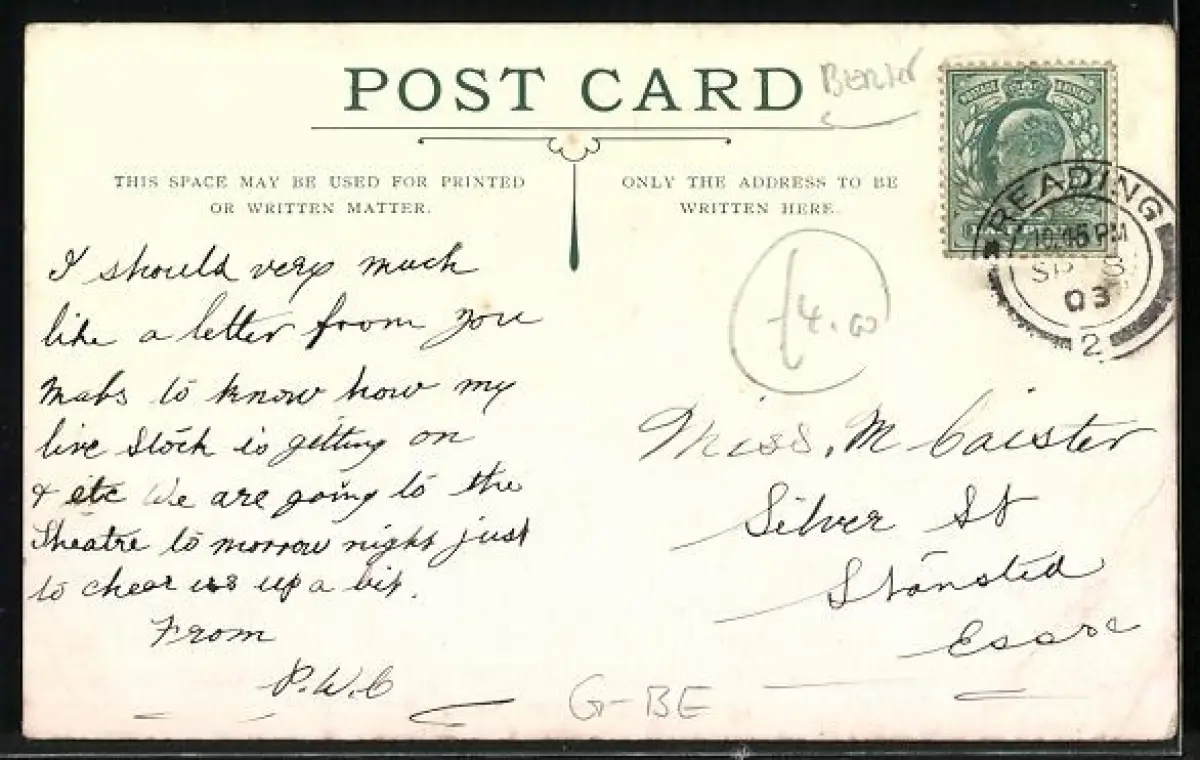 POST CARD
THIS SPACE MAY BE USED FOR PRINTED
OR WRITTEN MATTER.
ONLY THE ADDRESS TO BE
WRITTEN HERE.
READING
10.45 PM
SP 8
03
2
£4.00
I should very much
like a letter from you
Mabs to know how my
live stock is getting on
& etc We are going to the
Theatre to morrow night just
to cheer us up a bit.
From
P.W.C
Miss. M Caister
Silver St
Stansted
Essex
G-BE